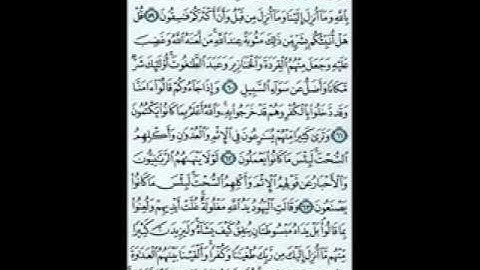 بِاللَّهِ وَمَا أُنزِلَ إِلَيْنَا وَمَا أُنزِلَ مِن قَبْلُ وَأَنَّ أَكْثَرَكُمْ فَاسِقُونَ ٥٩ قُلْ
هَلْ أُنَبِّئُكُم بِشَرٍّ مِّن ذَٰلِكَ مَثُوبَةً عِندَ اللَّهِ مَن لَّعَنَهُ اللَّهُ وَغَضِبَ
عَلَيْهِ وَجَعَلَ مِنْهُمُ الْقِرَدَةَ وَالْخَنَازِيرَ وَعَبَدَ الطَّاغُوتَ أُولَٰئِكَ شَرٌّ
مَّكَانًا وَأَضَلُّ عَن سَوَاءِ السَّبِيلِ ٦٠ وَإِذَا جَاءُوكُمْ قَالُوا آمَنَّا
وَقَد دَّخَلُوا بِالْكُفْرِ وَهُمْ قَدْ خَرَجُوا بِهِ وَاللَّهُ أَعْلَمُ بِمَا كَانُوا يَكْتُمُونَ
٦١ وَتَرَىٰ كَثِيرًا مِّنْهُمْ يُسَارِعُونَ فِي الْإِثْمِ وَالْعُدْوَانِ وَأَكْلِهِمُ
السُّحْتَ لَبِئْسَ مَا كَانُوا يَعْمَلُونَ ٦٢ لَوْلَا يَنْهَاهُمُ الرَّبَّانِيُّونَ
وَالْأَحْبَارُ عَن قَوْلِهِمُ الْإِثْمَ وَأَكْلِهِمُ السُّحْتَ لَبِئْسَ مَا كَانُوا
يَصْنَعُونَ ٦٣ وَقَالَتِ الْيَهُودُ يَدُ اللَّهِ مَغْلُولَةٌ غُلَّتْ أَيْدِيهِمْ وَلُعِنُوا
بِمَا قَالُوا بَلْ يَدَاهُ مَبْسُوطَتَانِ يُنفِقُ كَيْفَ يَشَاءُ وَلَيَزِيدَنَّ كَثِيرًا
مِّنْهُم مَّا أُنزِلَ إِلَيْكَ مِن رَّبِّكَ طُغْيَانًا وَكُفْرًا وَأَلْقَيْنَا بَيْنَهُمُ الْعَدَاوَةَ